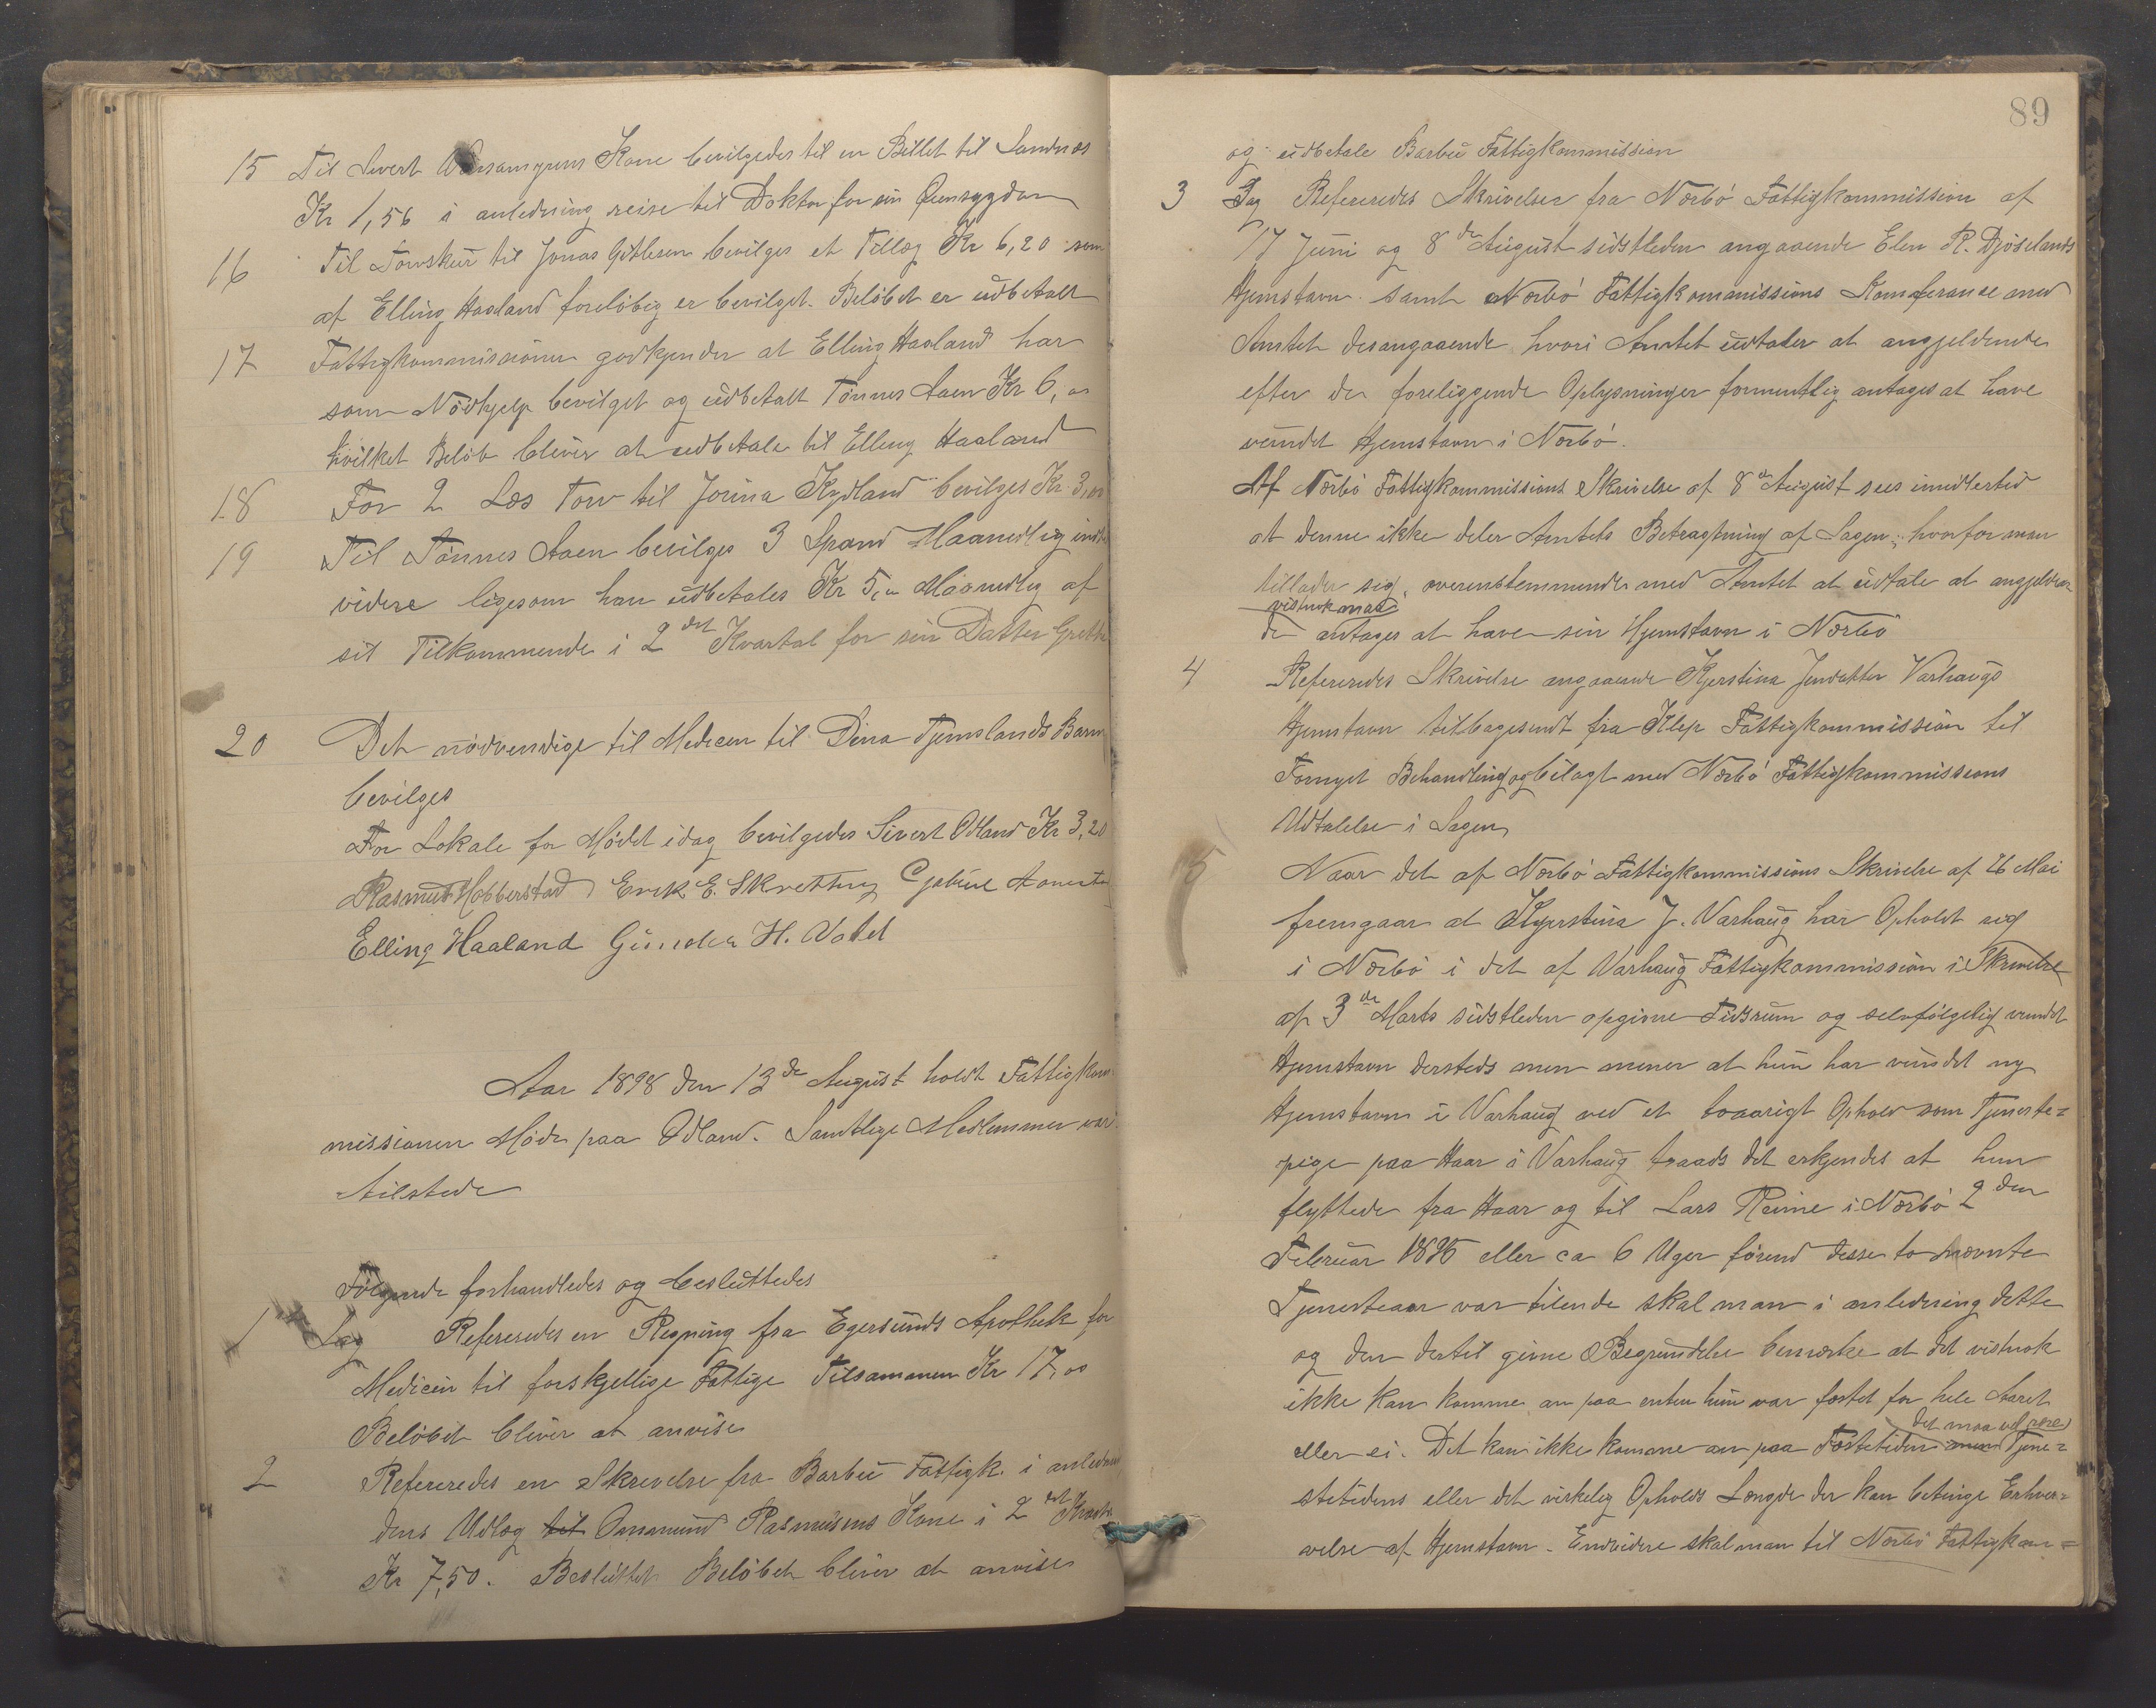 15 Til Sivert Kone bevilgedes til en Billet til Sandnæs
Kr 1,56 i anledning reise til Doktor for sin Øiensygdom
16 Til Torvskur til Jonas Gitlesen bevilges et Tillæg Kr 6,20 som
af Elling Haaland foreløbig er bevilget. Beløbet er udbetalt
17 Fattigkommissionen godkjender at Elling Haaland har
som Nødhjelp bevilget og udbetalt Tønnes Aaen Kr 6,00
hvilket Beløb bliver at udbetale til Elling Haaland
18 For 2 Læs Torv til Jorina Kydland bevilges Kr. 3,00
19 Til Tønnes Aaen bevilges 3 Spand Maanedlig indtil
videre ligesom han udbetales Kr 5,00 Maanedlig af
sit Tilkommende i 2det Kvartal for sin Datter Grethe
20 Det nødvendige til Medicin til Dina Tjemslands Barn
bevilges
For Lokale for Mødet idag bevilgedes Sivert Ødland Kr 3,20
Rasmus Hobberstad Erik E. Skretting Gabriel
Elling Haaland Gunder H. Votel
Aar 1898 den 13de August holdt Fattigkom-
missionen Møde paa Ødland. Samtlige Medlemmer var
tilstede
Følgende forhandledes og besluttedes
1 Sag Refereredes en Regning fra Egersunds Apothek for
Medicin til forskjellige Fattige Tilsammen Kr 17,00
Beløbet bliver at anvise
2 Refereredes en Skrivelse fra Barbu Fattigk. i anledning
dens Udlæg til Ommund Rasmusens Kone i 2det Kvartal
Kr 7,50. Besluttet Beløbet bliver at anvise
89
og udbetale Barbu Fattigkommission
3 Sag Refereredes Skrivelser fra Nærbø Fattigkommission af
17 Juni og 8de August sidstleden angaaende Elen R. Djöselands
Hjemstavn samt Nærbø Fattigkommissions Konferanse med
Amtet desangaaende hvori Amtet udtaler at angjeldende
efter de foreliggende Oplysninger formentlig antages at have
vundet Hjemstavn i Nærbø.
Af Nærbø Fattigkommissions Skrivelse af 8de August sees imidlertid
at denne ikke deler Amtets Betragtning af Sagen; hvorfor man
tillader sig, overenstemmende med Amtet at udtale at angjelden-
vistnok maa
de antages at have sin Hjemstavn i Nærbø
4 Refereredes Skrivelse angaaende Kjerstina Jensdatter Varhaugs
Hjemstavn tilbagesendt fra Klep Fattigkommission til
Fornyet Behandling og bilagt med Nærbø Fattigkommissions
Udtalelse i Sagen
Naar det af Nærbø Fattigkommissions Skrivelse af 26 Mai
fremgaar at Kjerstina J. Varhaug har Opholdt sig
i Nærbø i det af Varhaug Fattigkommission i Skrivelse
af 3de Marts sidstleden opgivne Tidsrum og selvfølgelig vundet
Hjemstavn dersteds men mener at hun har vundet ny
Hjemstavn i Varhaug ved et toaarigt Ophold som Tjeneste=
pige paa Haar i Varhaug traads det erkjendes at hun
flyttede fra Haar og til Lars Reime i Nærbø 2den
Februar 1895 eller ca 6 Uger førend disse to nævnte
Tjenesteaar var tilende skal man i anledning dette
og den dertil givne Begrundelse bemærke at det vistnok
ikke kan komme an paa enten hun var fæstet for hele Aaret
det maa vel være
eller ei. Det kan ikke komme an paa Fæstetiden men Tjene=
stetidens eller det virkelig Opholds Længde der kan betinge Erhver=
velse af Hjemstavn. Endvidere skal man til Nærbø Fattigkom=